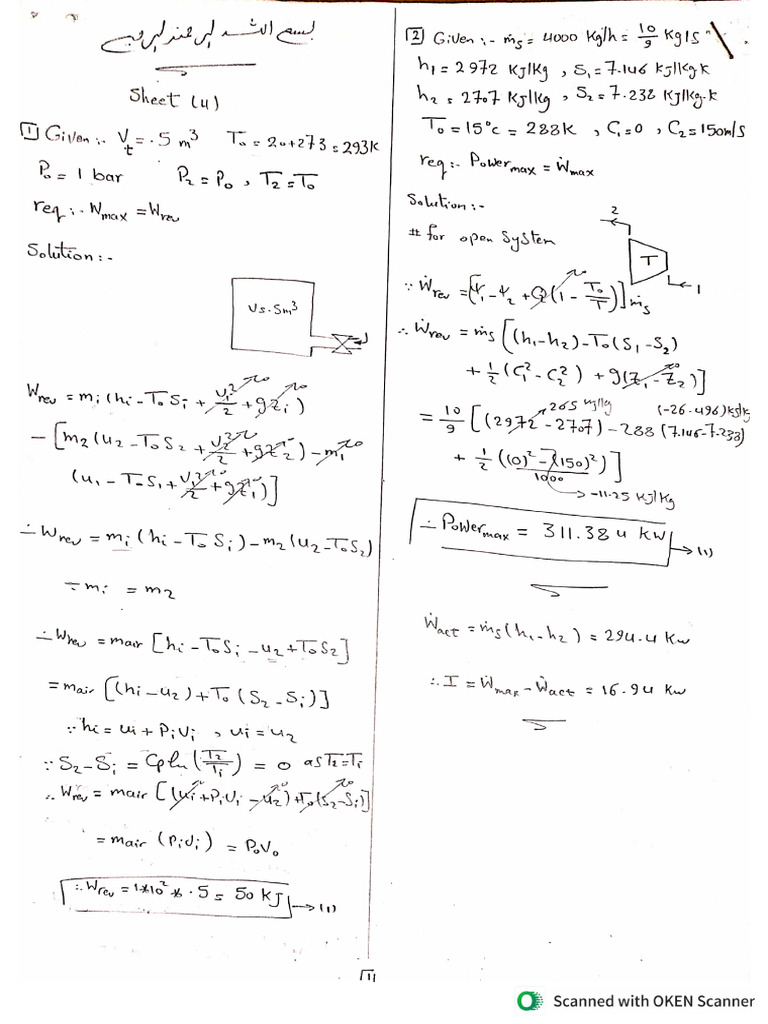 بسم الله الرحمن الرحيم
Sheet (4)
[1] Given :- Vt = .5 m³ T₀ = 20+273 = 293K
P₀ = 1 bar P₂ = P₀ , T₂ = T₀
req :- Wmax = Wrev
Solution :-
V = .5m³
Wrev = mi (hi - T₀Si + Vi²/2 + gZi)
- [m₂ (u₂ - T₀S₂ + V₂²/2 + gZ₂) - m₁
(u₁ - T₀S₁ + V₁²/2 + gZ₁)]
∴ Wrev = mi (hi - T₀Si) - m₂ (u₂ - T₀S₂)
∵ mi = m₂
∴ Wrev = mair [hi - T₀Si - u₂ + T₀S₂]
= mair [(hi - u₂) + T₀ (S₂ - Si)]
∵ hi = ui + Pivi , ui = u₂
∵ S₂ - Si = Cp ln (T₂/Ti) = 0 as T₂ = Ti
∴ Wrev = mair [(ui + Pivi - u₂) + T₀(S₂ - Si)]
= mair (Pivi) = P₀V₀
∴ Wrev = 1*10² * .5 = 50 KJ → (1)
[2] Given :- ṁs = 4000 Kg/h = 10/9 Kg/s
h₁ = 2972 KJ/Kg , S₁ = 7.146 KJ/Kg.K
h₂ = 2707 KJ/Kg , S₂ = 7.238 KJ/Kg.K
T₀ = 15°C = 288K , C₁ = 0 , C₂ = 150m/s
req :- Powermax = Ẇmax
Solution :-
# for open System
2
T
1
∵ Ẇrev = [Ψ₁ - Ψ₂ + Q (1 - T₀/T)] ṁs
∴ Ẇrev = ṁs [(h₁ - h₂) - T₀ (S₁ - S₂)
+ 1/2 (C₁² - C₂²) + g(Z₁ - Z₂)]
265 KJ/Kg (-26.496) KJ/Kg
= 10/9 [(2972 - 2707) - 288 (7.146 - 7.238)
+ 1/2 ((0)² - (150)²)/1000]
→ -11.25 KJ/Kg
∴ Powermax = 311.384 KW → (1)
Ẇact = ṁs (h₁ - h₂) = 294.4 Kw
∴ I = Ẇmax - Ẇact = 16.94 Kw
[1]
Scanned with OKEN Scanner